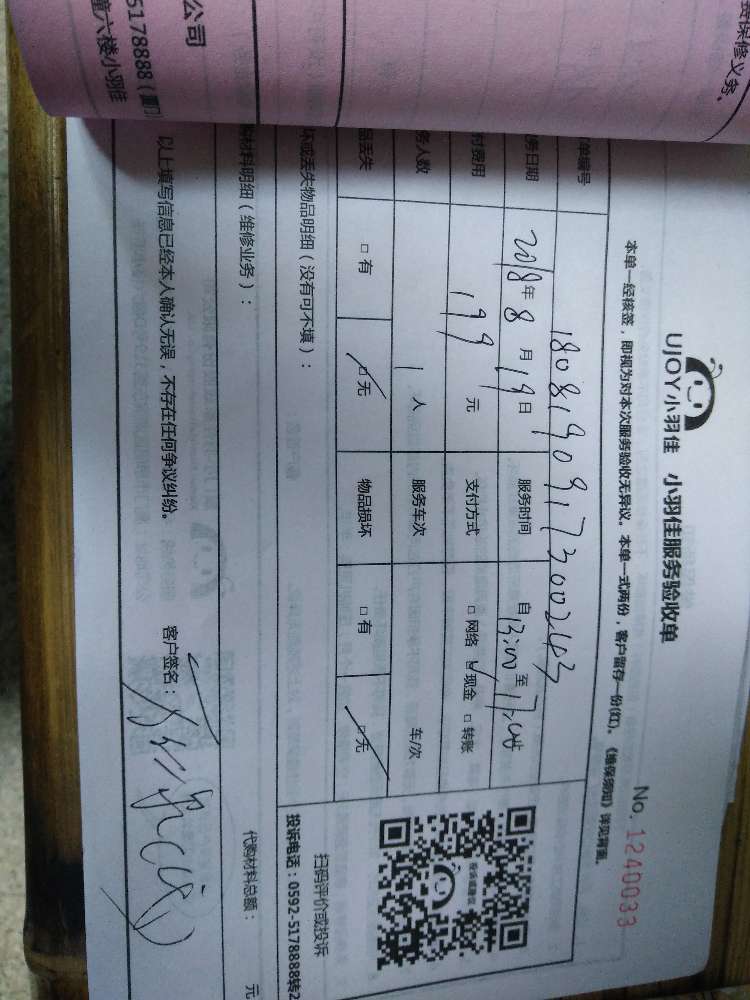 资保修义务。
公司
5178888（厦门
童六楼小羽佳
UJOY小羽佳 小羽佳服务验收单
No. 1240033
本单一经核签，即视为对本次服务验收无异议。本单一式两份，客户留存一份(红)。《维保须知》详见背面。
单编号 18081909173002403
务日期 2018年8月19日 服务时间 自13:00至17:00
付费用 199元 支付方式 □网络 ☑现金 □转账
务人数 1人 服务车次 车/次
品丢失 □有 ☑无 物品损坏 □有 ☑无
坏或丢失物品明细（没有可不填）：
扫码评价或投诉
投诉电话：0592-5178888转2
材料明细（维修业务）：
代购材料总额： 元
以上填写信息已经本人确认无误，不存在任何争议纠纷。 客户签名：